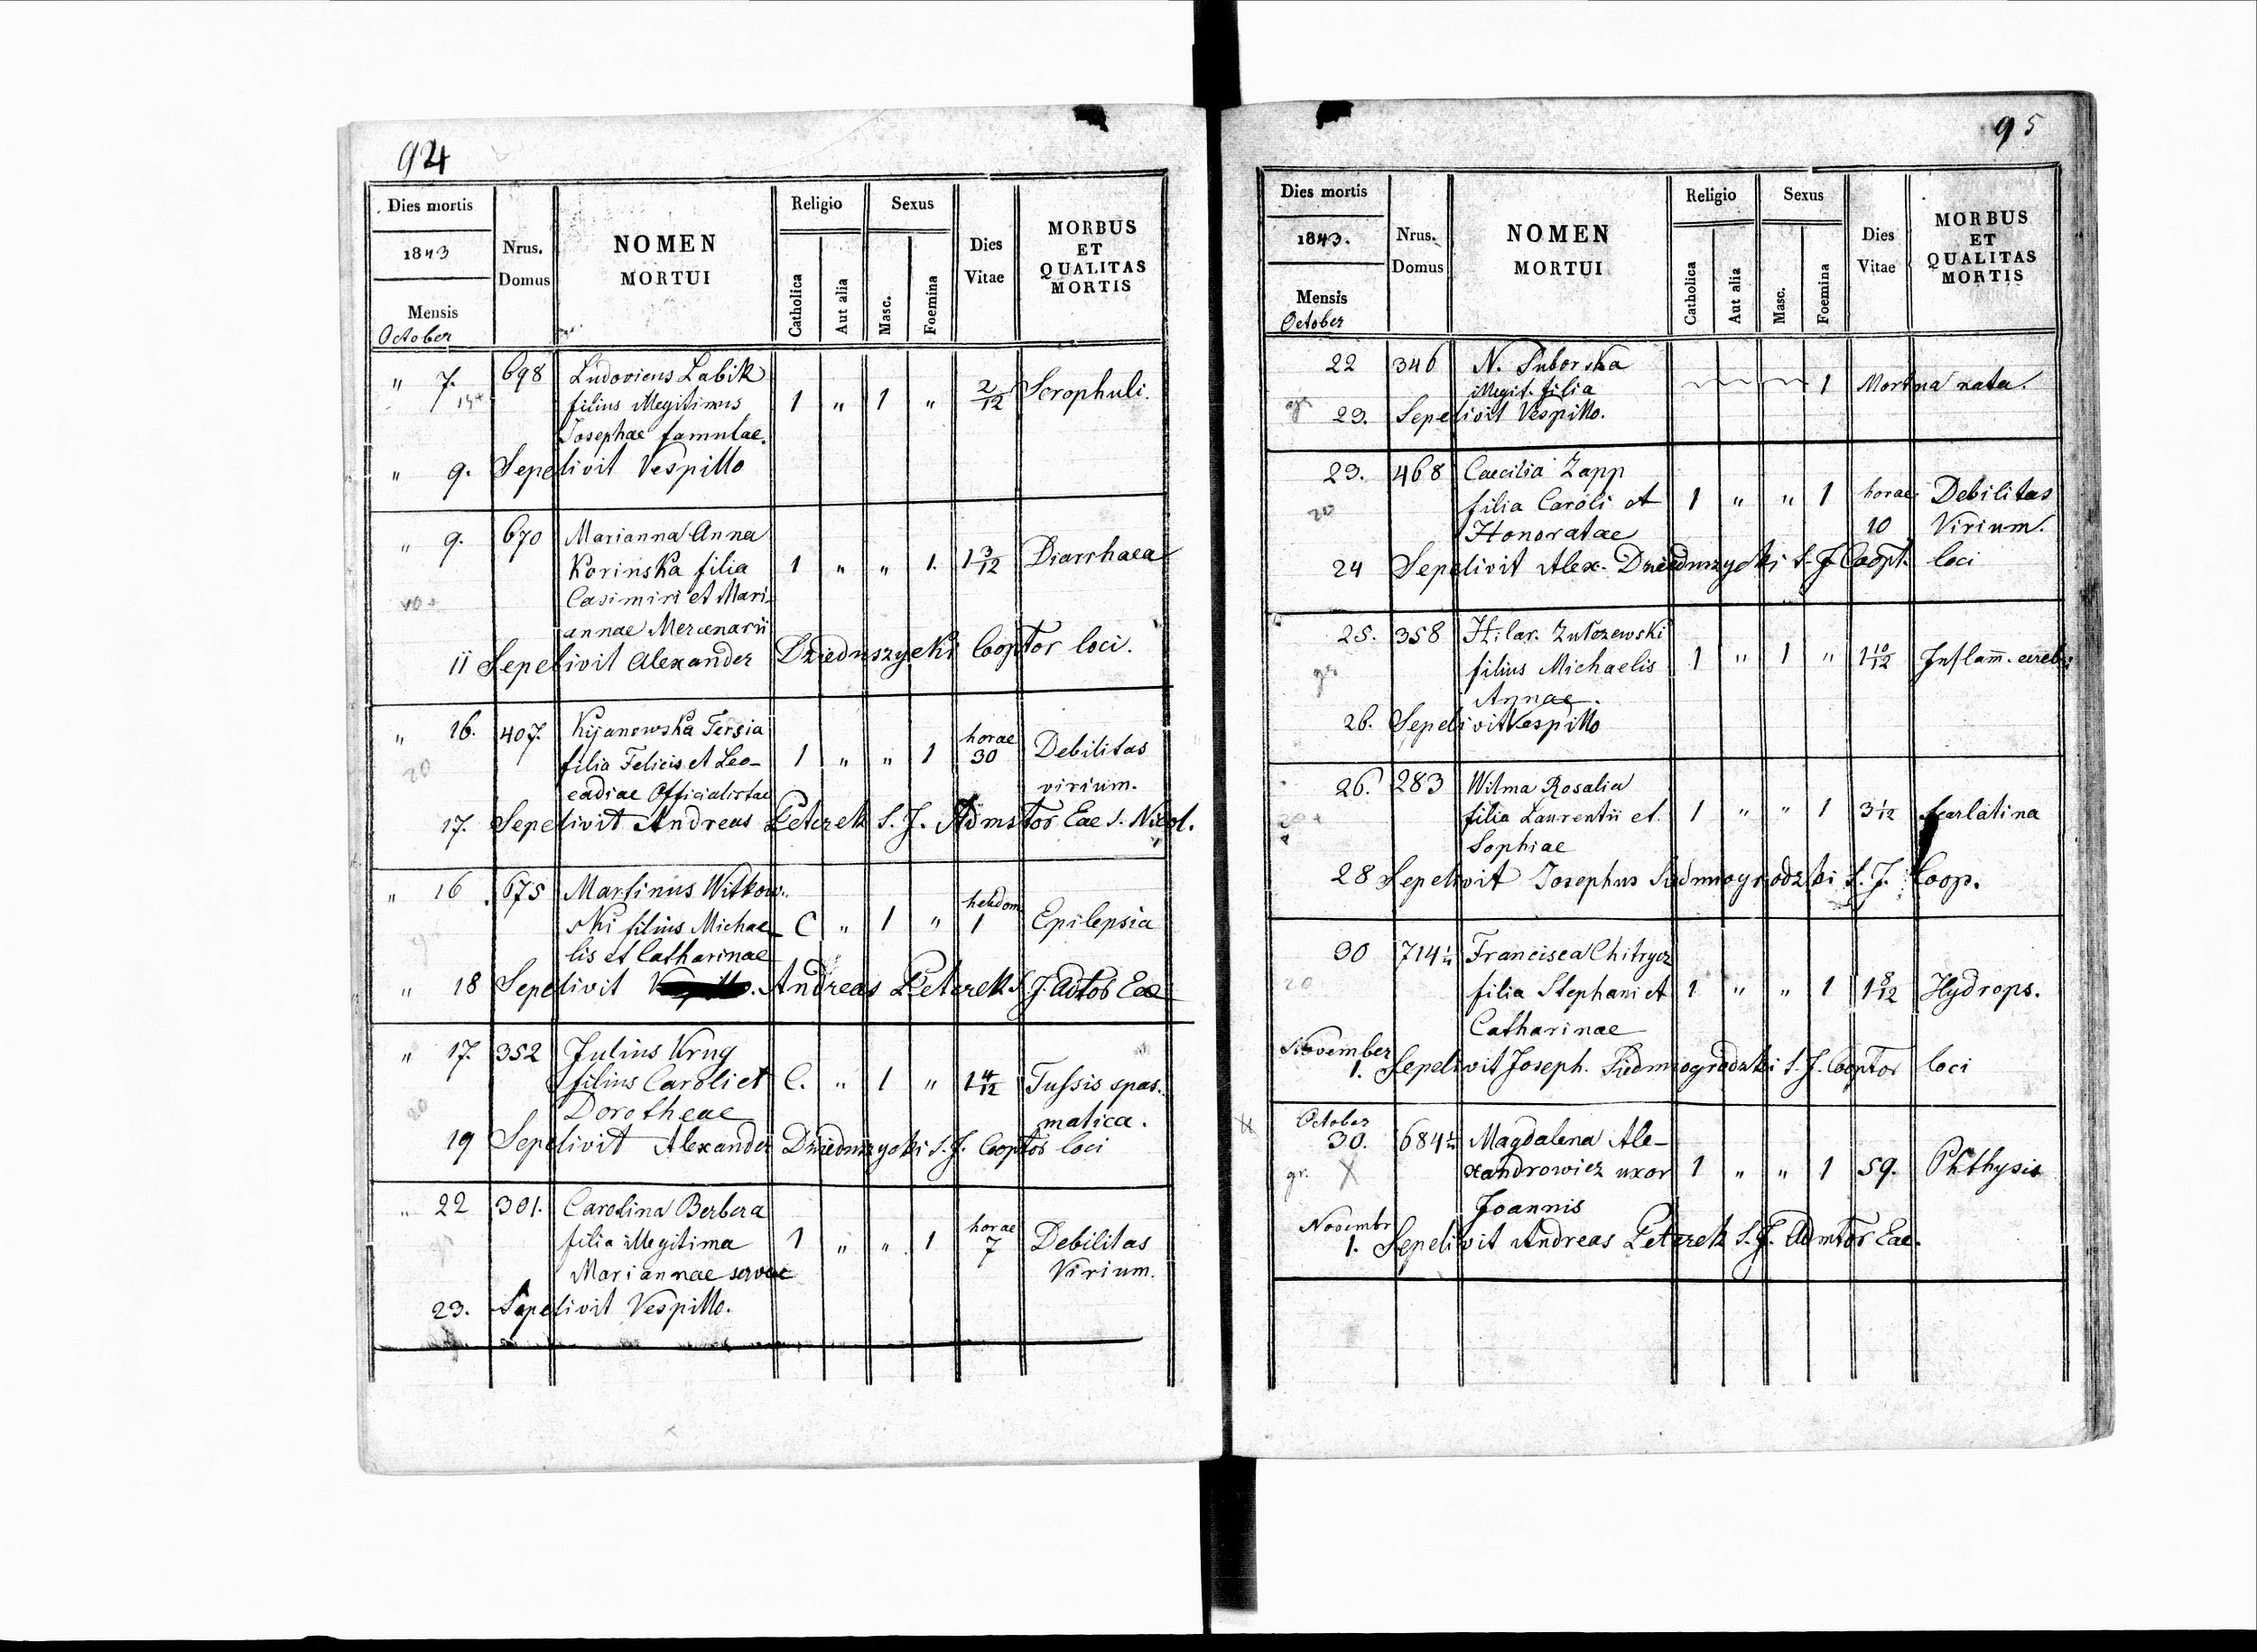 94
Dies mortis
1843
Mensis
October
Nrus.
Domus
NOMEN
MORTUI
Religio
Catholica
Aut alia
Sexus
Masc.
Foemina
Dies
Vitae
MORBUS
ET
QUALITAS
MORTIS
" 7. 698 Ludovicus Labik
filius illegitimus 1 " 1 " 2/12 Scrophuli.
Josephae famulae.
" 9. Sepelivit Vespillo
" 9. 670 Marianna Anna
Korinska filia 1 " " 1. 1 3/12 Diarrhaea
Casimiri et Mari-
annae Mercenarii
11 Sepelivit Alexander Dzieduszycki Cooptor loci.
" 16. 407. Kijanowska Tersia
filia Felicis et Leo- 1 " " 1 horae 30 Debilitas
cadiae Officialistae virium.
17. Sepelivit Andreas Peterek S. J. Admstor Eae S. Nicol.
" 16 675 Martinus Witkow-
ski filius Michae- C " 1 " hebdom. 1 Epilepsia
lis et Catharinae
" 18 Sepelivit Andreas Peterek S. J. Adtob Eae
" 17. 352 Julius Krug
filius Caroli et C. " 1 " 1 4/12 Tussis spas-
Dorotheae matica.
19 Sepelivit Alexander Dzieduszycki S. J. Cooptor loci
" 22 301. Carolina Berbera
filia illegitima 1 " " 1 horae 7 Debilitas
Mariannae servae Virium.
23. Sepelivit Vespillo.
95
Dies mortis
1843.
Mensis
October
Nrus.
Domus
NOMEN
MORTUI
Religio
Catholica
Aut alia
Sexus
Masc.
Foemina
Dies
Vitae
MORBUS
ET
QUALITAS
MORTIS
22 346 N. Suborska
illegit. filia 1 Mortua nata.
gr. 23. Sepelivit Vespillo.
23. 468 Caecilia Zapp
20 filia Caroli et 1 " " 1 horae 10 Debilitas
Honoratae Virium.
24 Sepelivit Alex. Dzieduszycki S. J. Coopt. loci
25. 358 Hilar. Zulozewski
gr. filius Michaelis 1 " 1 " 1 10/12 Inflam. cereb:
Annae.
26. Sepelivit Vespillo
26. 283 Wilma Rosalia
filia Laurentii et 1 " " 1 3 1/12 scarlatina
Sophiae
28 Sepelivit Josephus Siedmiogrodzki S. J. Coop.
30 714 Francisca Chitrycz
20 filia Stephani et 1 " " 1 1 8/12 Hydrops.
Catharinae
November
1. Sepelivit Joseph. Siedmiogrodzki S. J. Cooptor loci
October
30. 684 Magdalena Ale-
gr. X xandrowicz uxor 1 " " 1 59. Phthysis
Joannis
Novembr
1. Sepelivit Andreas Peterek S. J. Admtor Eae.